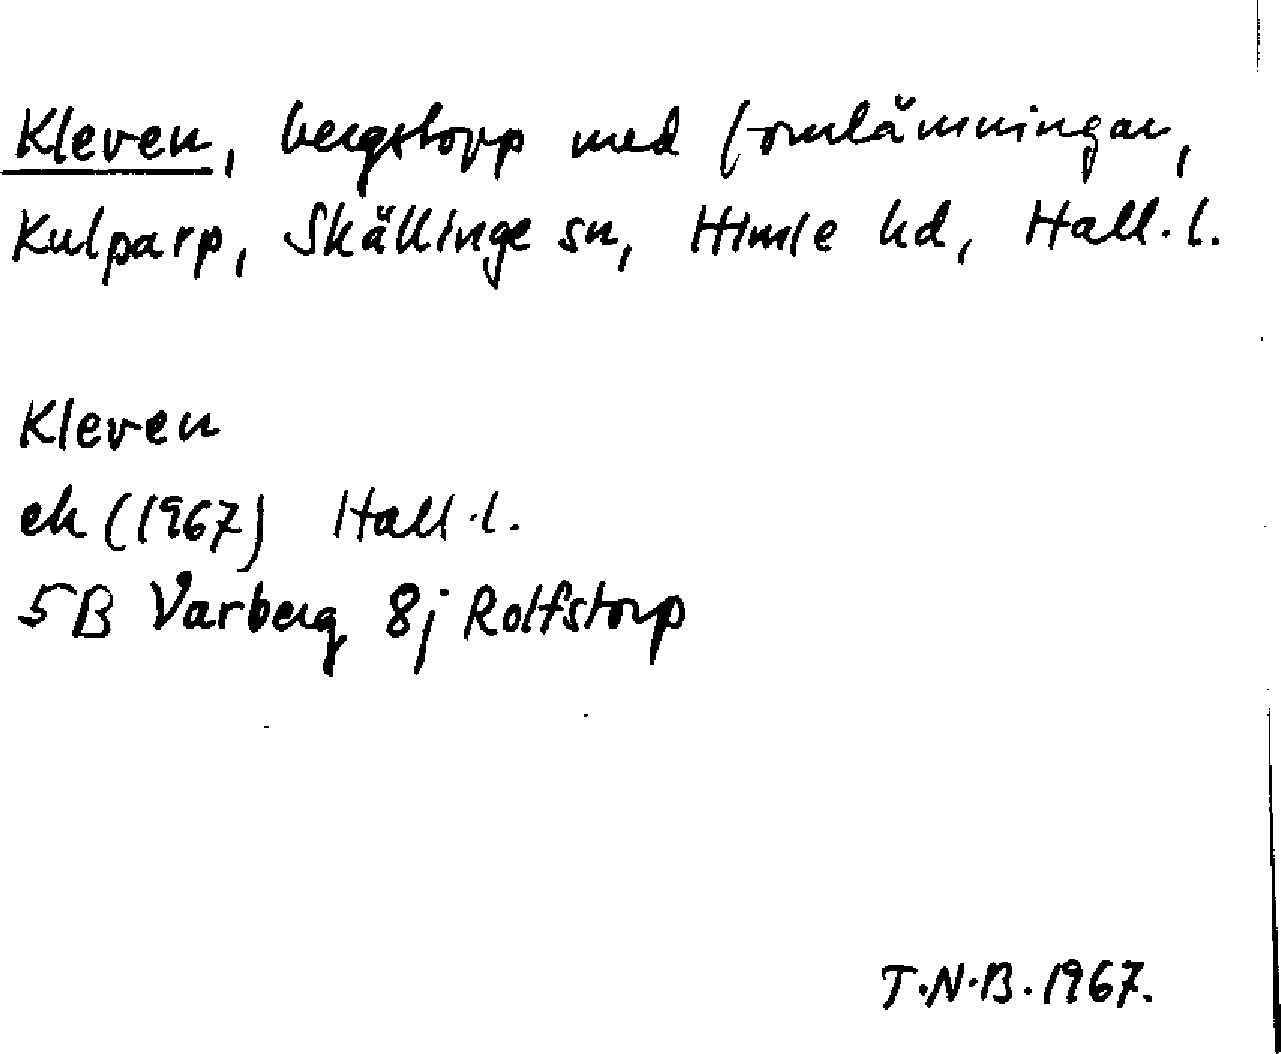 Kleven, bergstopp med fornlämningar,
Kulparp, Skällinge sn, Himle hd, Hall. l.
Kleven
ek (1967) Hall. l.
5B Varberg 8j Rolfstorp
T.N.B. 1967.